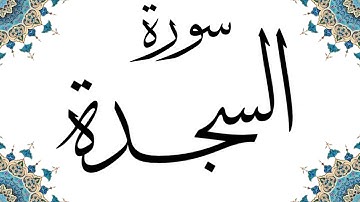 سورة
السجدة